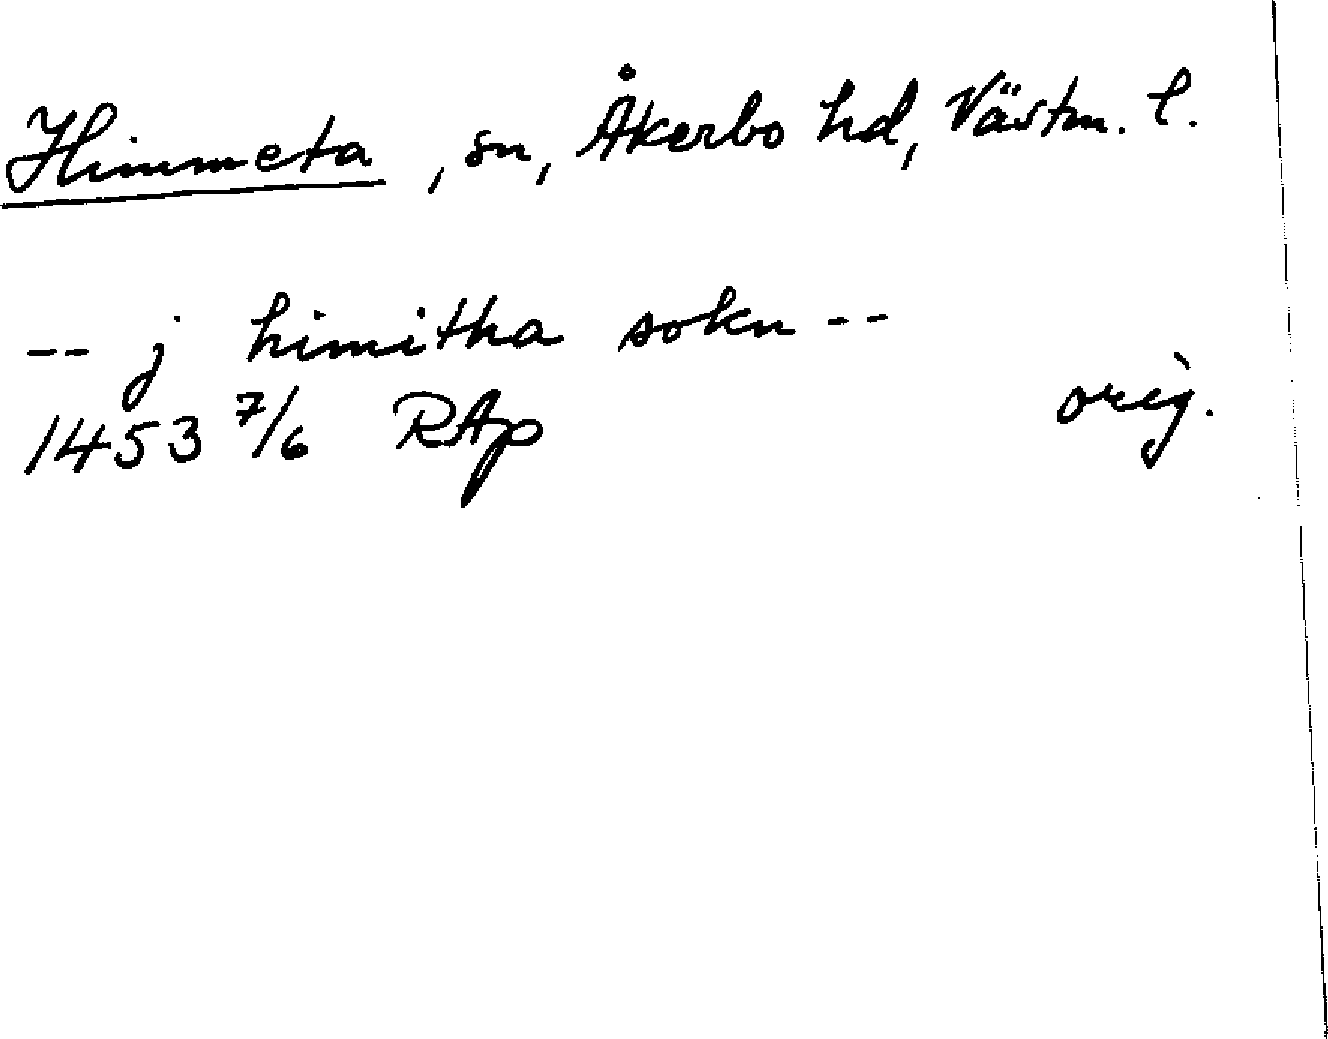 Himmeta, sn, Åkerbo hd, Västm. l.
-- j himitha sokn --
1453 7/6 RAp orig.